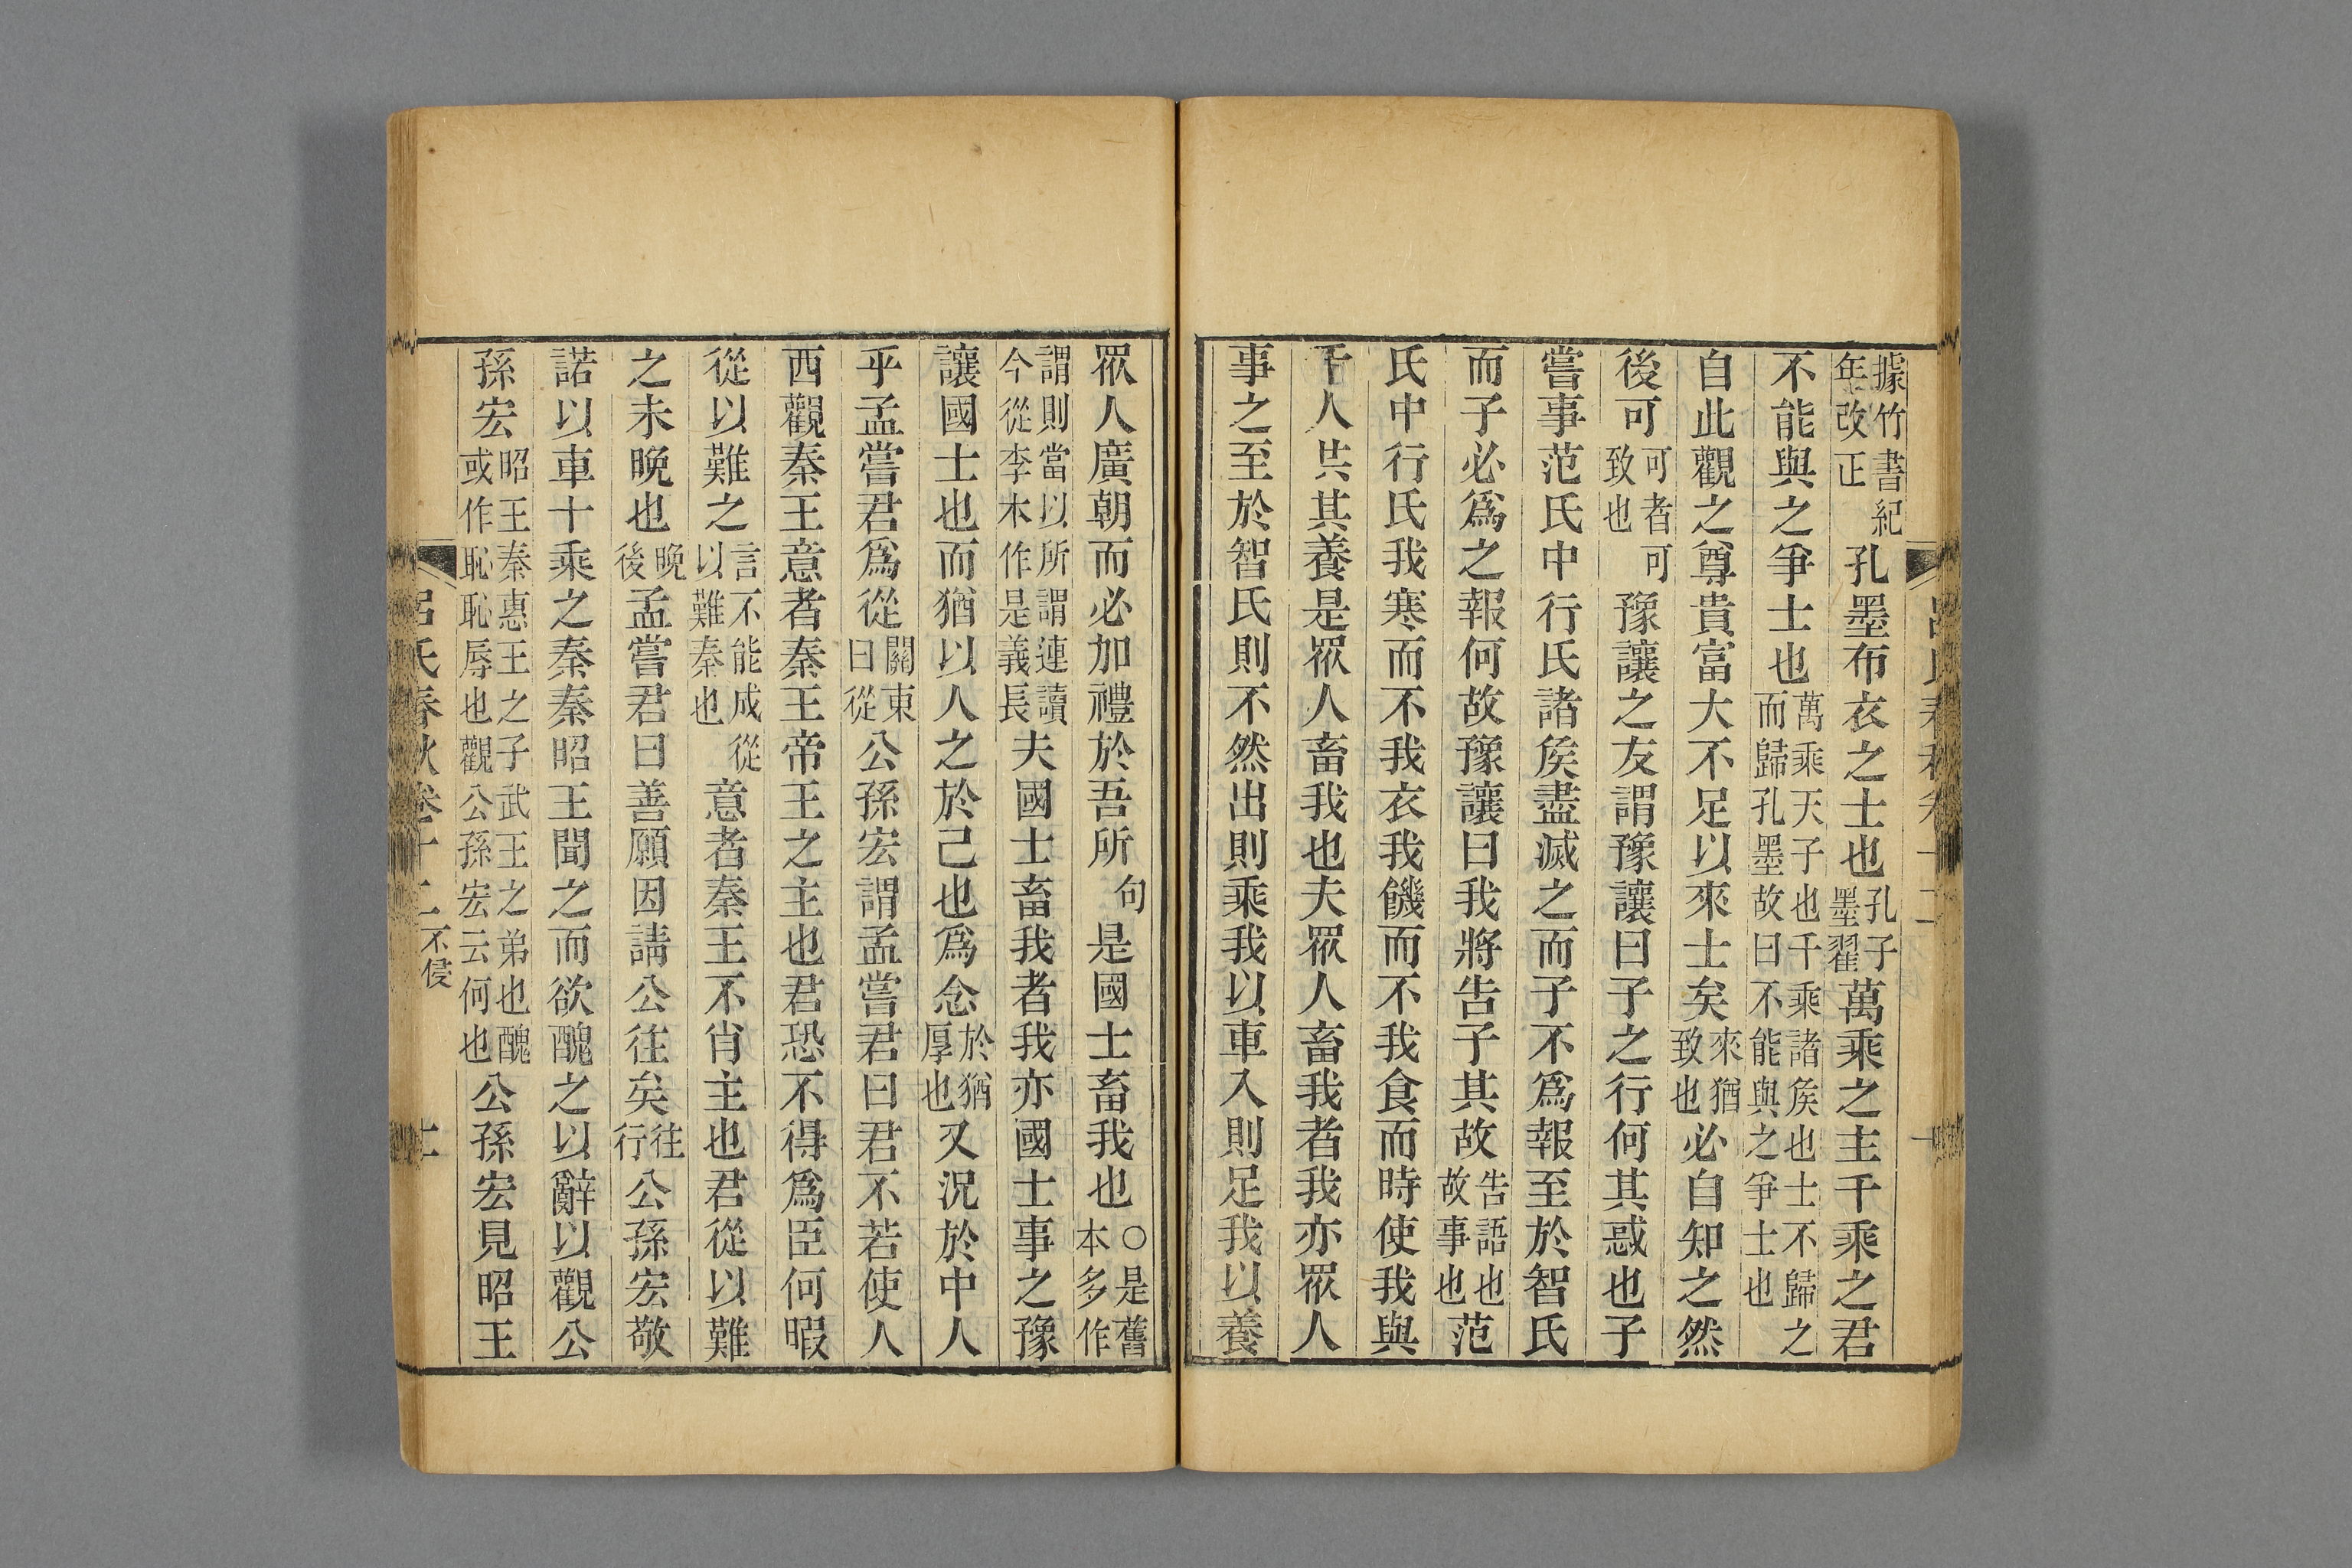 據竹書紀年改正孔墨布衣之士也孔子墨翟萬乘之主千乘之君
不能與之爭士也萬乘天子也千乘諸矦也士不歸之而歸孔墨故曰不能與之爭士也
自此觀之尊貴富大不足以來士矣來猶致也必自知之然
後可可者可致也豫讓之友謂豫讓曰子之行何其惑也子
嘗事范氏中行氏諸矦盡滅之而子不爲報至於智氏
而子必爲之報何故豫讓曰我將告子其故告語也故事也范
氏中行氏我寒而不我衣我饑而不我食而時使我與
千人共其養是眾人畜我也夫眾人畜我者我亦眾人
事之至於智氏則不然出則乘我以車入則足我以養
眾人廣朝而必加禮於吾所句是國士畜我也○是舊本多作
謂則當以所謂連讀今從李本作是義長夫國士畜我者我亦國士事之豫
讓國士也而猶以人之於己也爲念於猶厚也又況於中人
乎孟嘗君爲從關東曰從公孫宏謂孟嘗君曰君不若使人
西觀秦王意者秦王帝王之主也君恐不得爲臣何暇
從以難之言不能成從以難秦也意者秦王不肖主也君從以難
之未晚也晚後孟嘗君曰善願因請公往矣往行公孫宏敬
諾以車十乘之秦秦昭王聞之而欲醜之以辭以觀公
孫宏昭王秦惠王之子武王之弟也醜或作恥恥辱也觀公孫宏云何也公孫宏見昭王
呂氏春秋卷十二 不侵